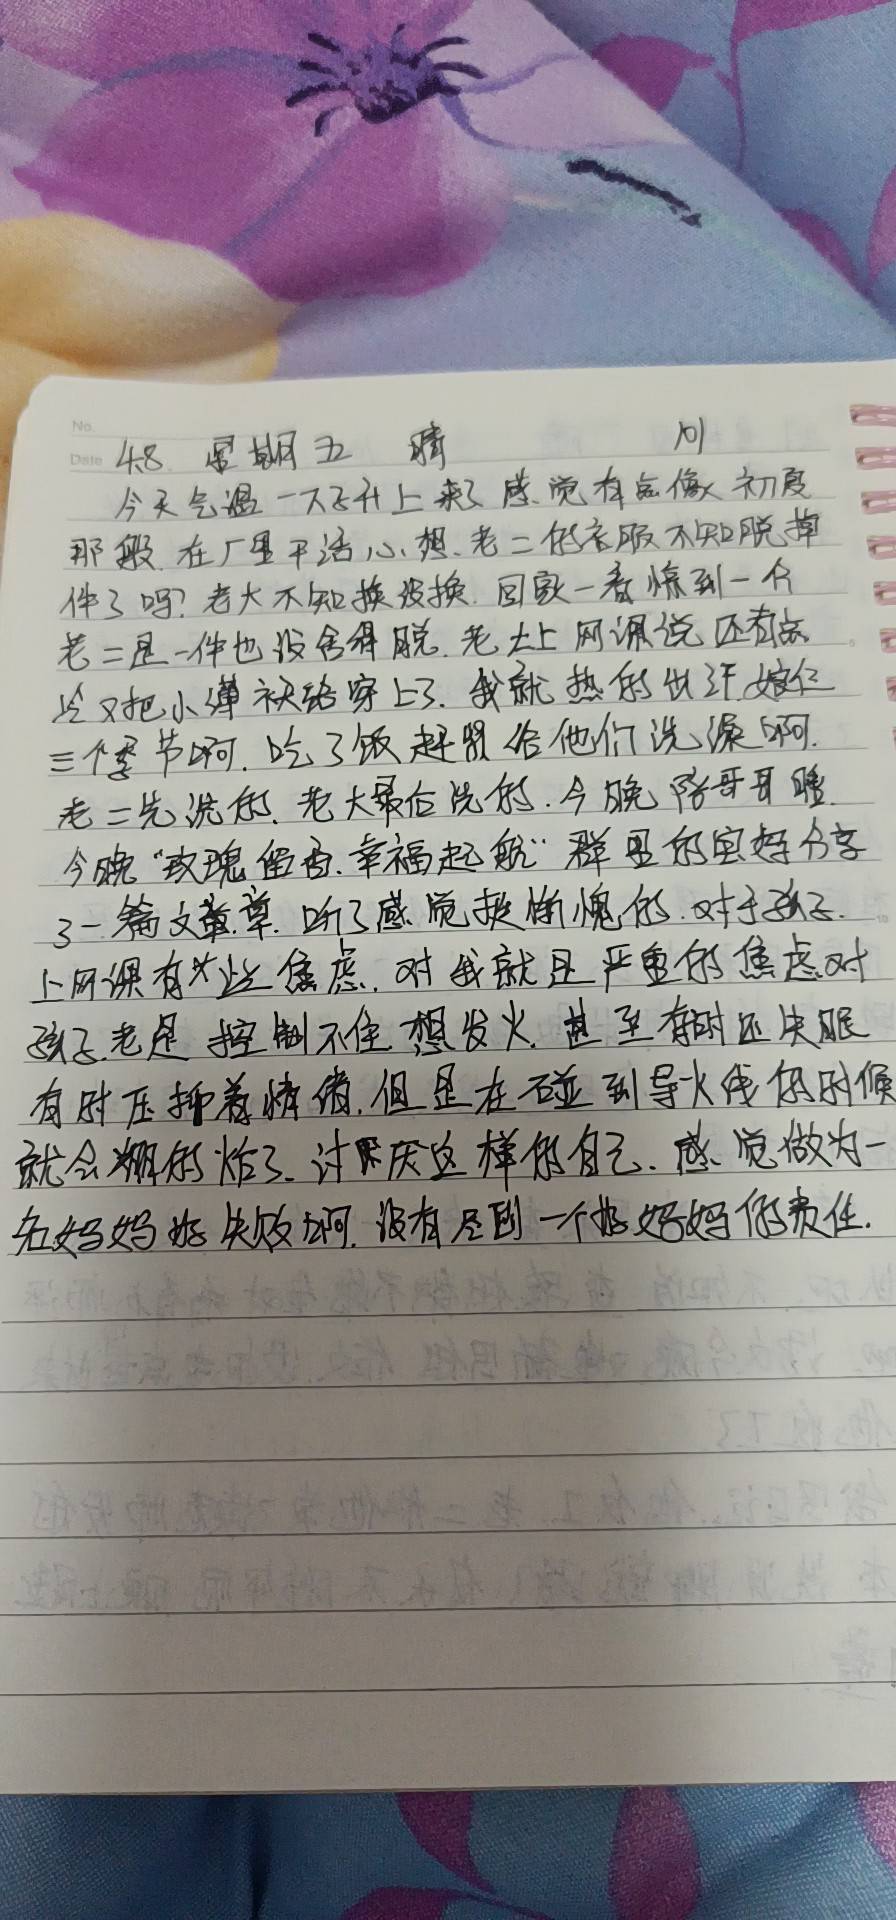 No.
Date 4.8 星期五 晴 101
今天气温一下子升上来了感觉有点像初夏
那般.在厂里干活心想.老二的衣服不知脱掉
件了吗?老大不知换没换.回家一看惊到一个
老二是一件也没舍得脱.老大上网课说还有点
冷又把小薄袄给穿上了.我就热的出汗.娘仨
三个季节啊.吃了饭赶紧给他们洗澡啊.
老二先洗的.老大最后洗的.今晚陪哥哥睡.
今晚“玫瑰留香.幸福起航”群里的宝妈分享
了一篇文章.听了感觉挺惭愧的.对于孩子.
上网课有些焦虑.对我就是严重的焦虑.对
孩子老是控制不住想发火.甚至有时还失眠
有时压抑着情绪.但是在碰到导火线的时候
就会嘣的炸了.讨厌这样的自己.感觉做为一
名妈妈好失败啊.没有尽到一个好妈妈的责任.